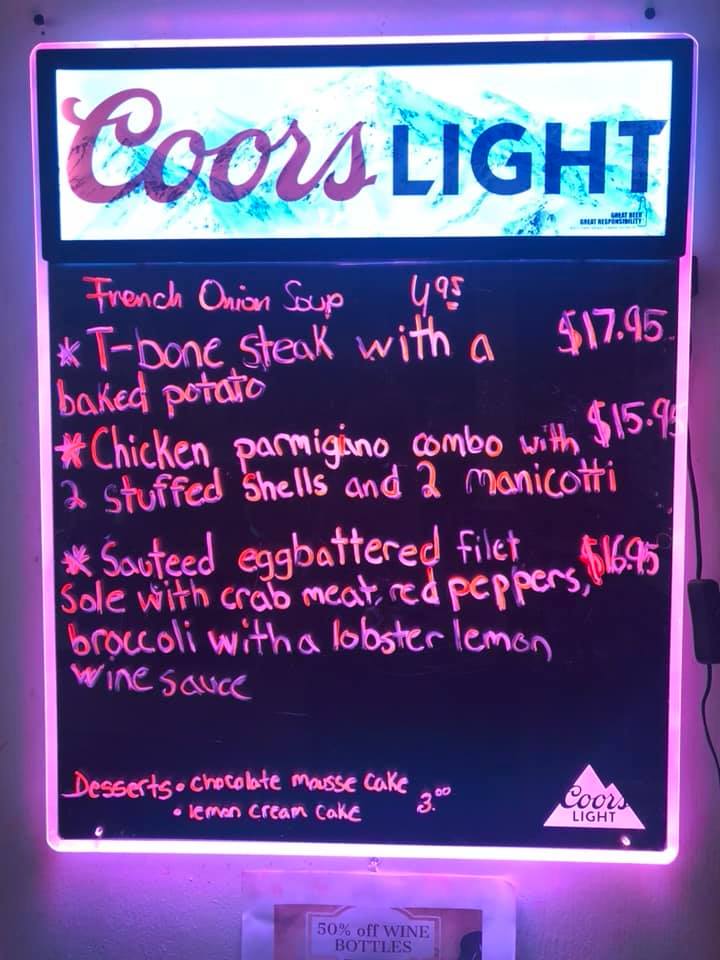 Coors LIGHT
GREAT BEER
GREAT RESPONSIBILITY
French Onion Soup 4.95
* T-bone steak with a $17.95
baked potato
* Chicken parmigino combo with $15.95
2 stuffed shells and 2 manicotti
* Sauteed eggbattered filet $16.95
Sole with crab meat, red peppers,
broccoli with a lobster lemon
wine sauce
Desserts • chocolate mousse cake 3.00
• lemon cream cake
Coors
LIGHT
50% off WINE
BOTTLES